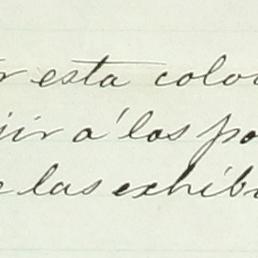 r esta colo
jir á los po
e las exhib